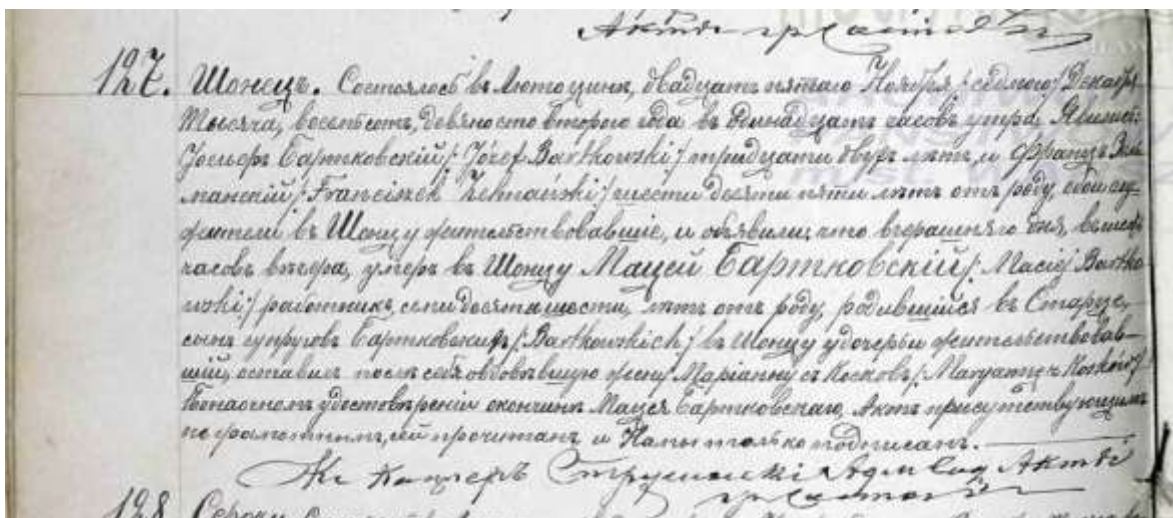 Акты
127. Шонецъ. Состоялось въ Лютоцинѣ, двадцать пятаго Ноября /седьмого/ Декабря
Тысяча, восемьсотъ, девяносто второго года въ одинадцать часовъ утра. Явились:
Іосифъ Бартковскій /: Józef Bartkowski :/ тридцати двухъ лѣтъ, и Францъ Зел-
манскій /: Franciszek Zelmański :/ шести десяти пяти лѣтъ отъ роду, оба слу-
жители въ Шонцу жительствовавшіе, и объявили, что вчерашняго дня, въ шесть
часовъ вечера, умеръ въ Шонцу Мацей Бартковскій /: Maciéj Bartko-
wski :/ работникъ, семи десяти шести, лѣтъ отъ роду, родившійся въ Старце,
сынъ супруговъ Бартковскихъ /: Bartkowskich :/ въ Шонцу у дочери жительствовав-
шій, оставилъ послѣ себя овдовѣвшую жену Маріанну съ Косковъ /: Maryannę z Kosków :/
По наочномъ удостовѣреніи о кончинѣ Мацея Бартковскаго, Актъ присутствующимъ
не грамотнымъ, сей прочитанъ и Нами только подписанъ.
Кс Сод Акты
128.